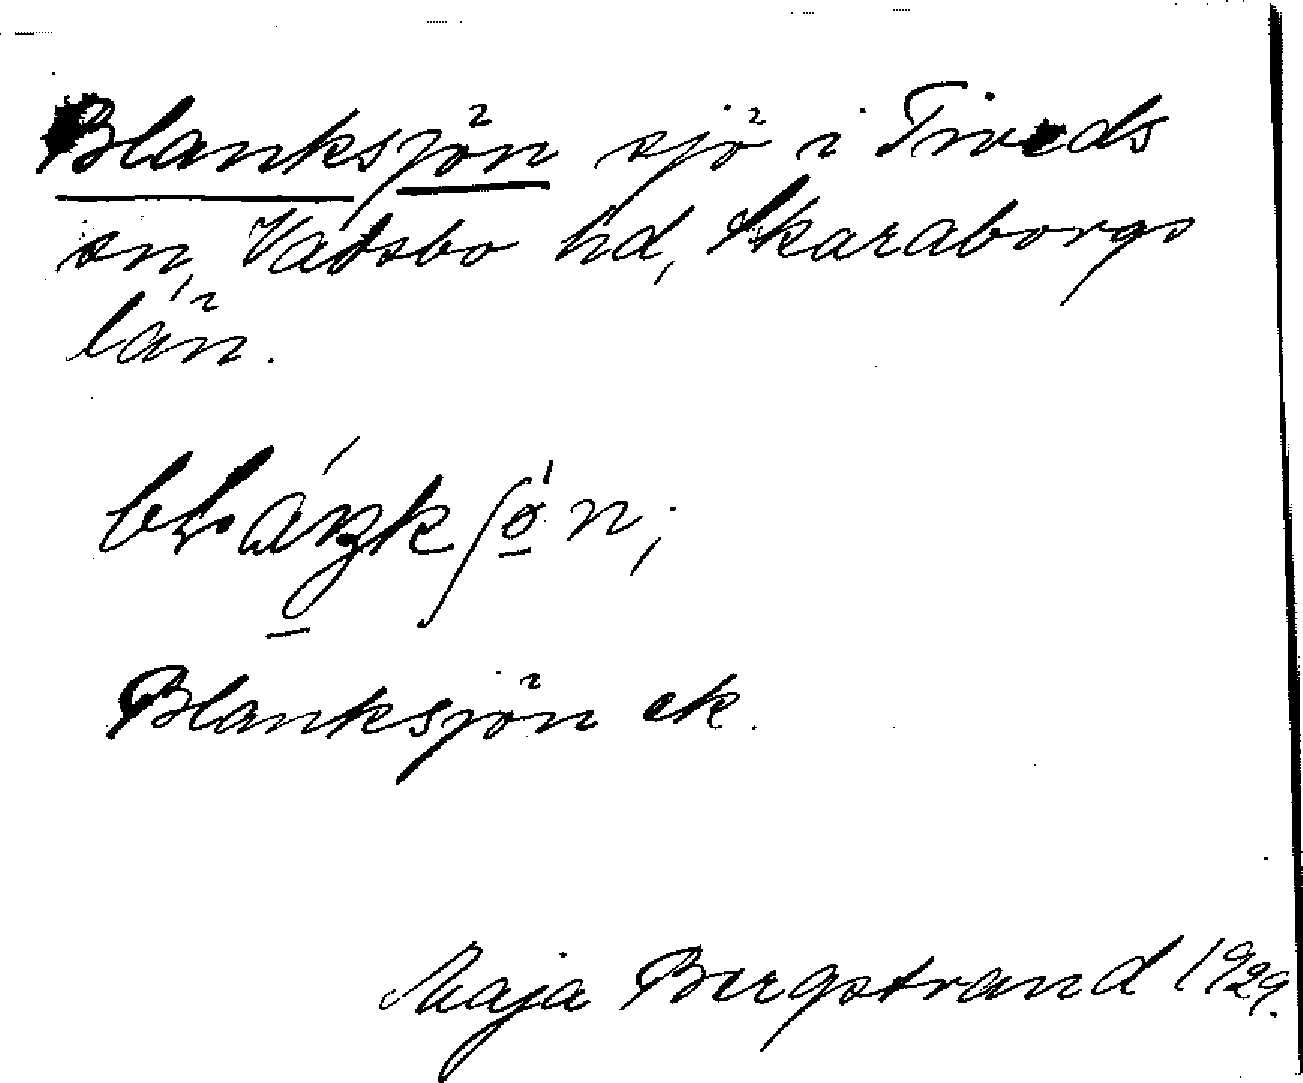 Blanksjön sjö i Tiveds
sn, Vadsbo hd, Skaraborgs
län.
Blanksjön ek.
Maja Bergstrand 1929.